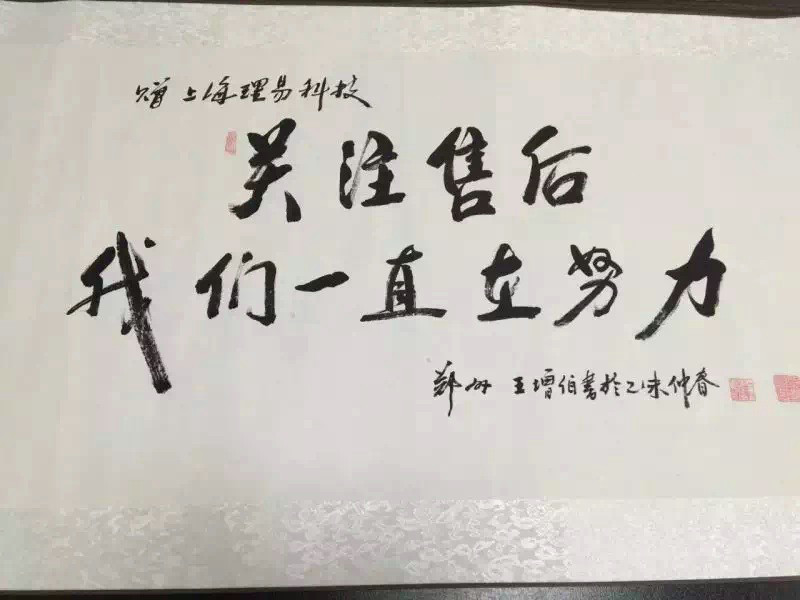 赠上海理易科技
关注售后
我们一直在努力
郑州 王增伯书于乙未仲春